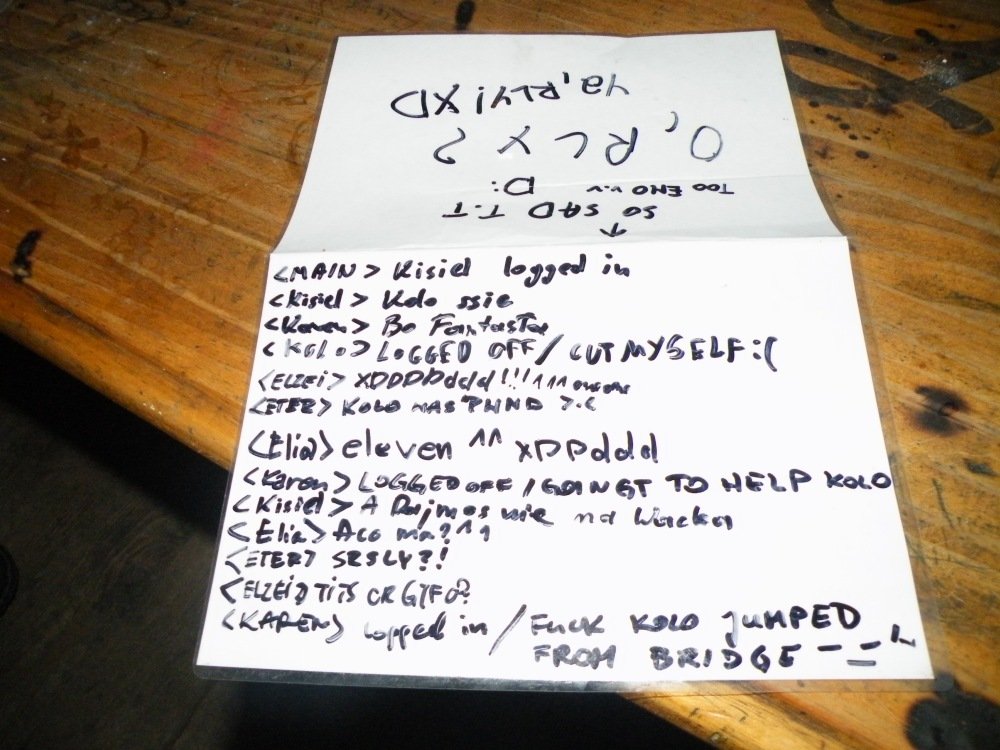 SO SAD T.T
TOO EMO v.v D:
O, RLY?
ya, RLY! XD
<MAIN> Kisiel logged in
<Kisiel> Kolo ssie
<Karen> Bo Fantasta
<KOLO> LOGGED OFF / CUT MYSELF :(
<ELZEI> XDDDDddd!!!111
<ETER> KOLO HAS PWND >.<
<Elia> eleven ^^ xDDddd
<Karen> LOGGED OFF / GOINGT TO HELP KOLO
<Kisiel> A Dajmos wie na Wacka
<Elia> A co ma?^^
<ETER> SRSLY?!
<ELZEI> TITS OR GTFO?
<KAREN> logged in / FUCK KOLO JUMPED
FROM BRIDGE -_-'